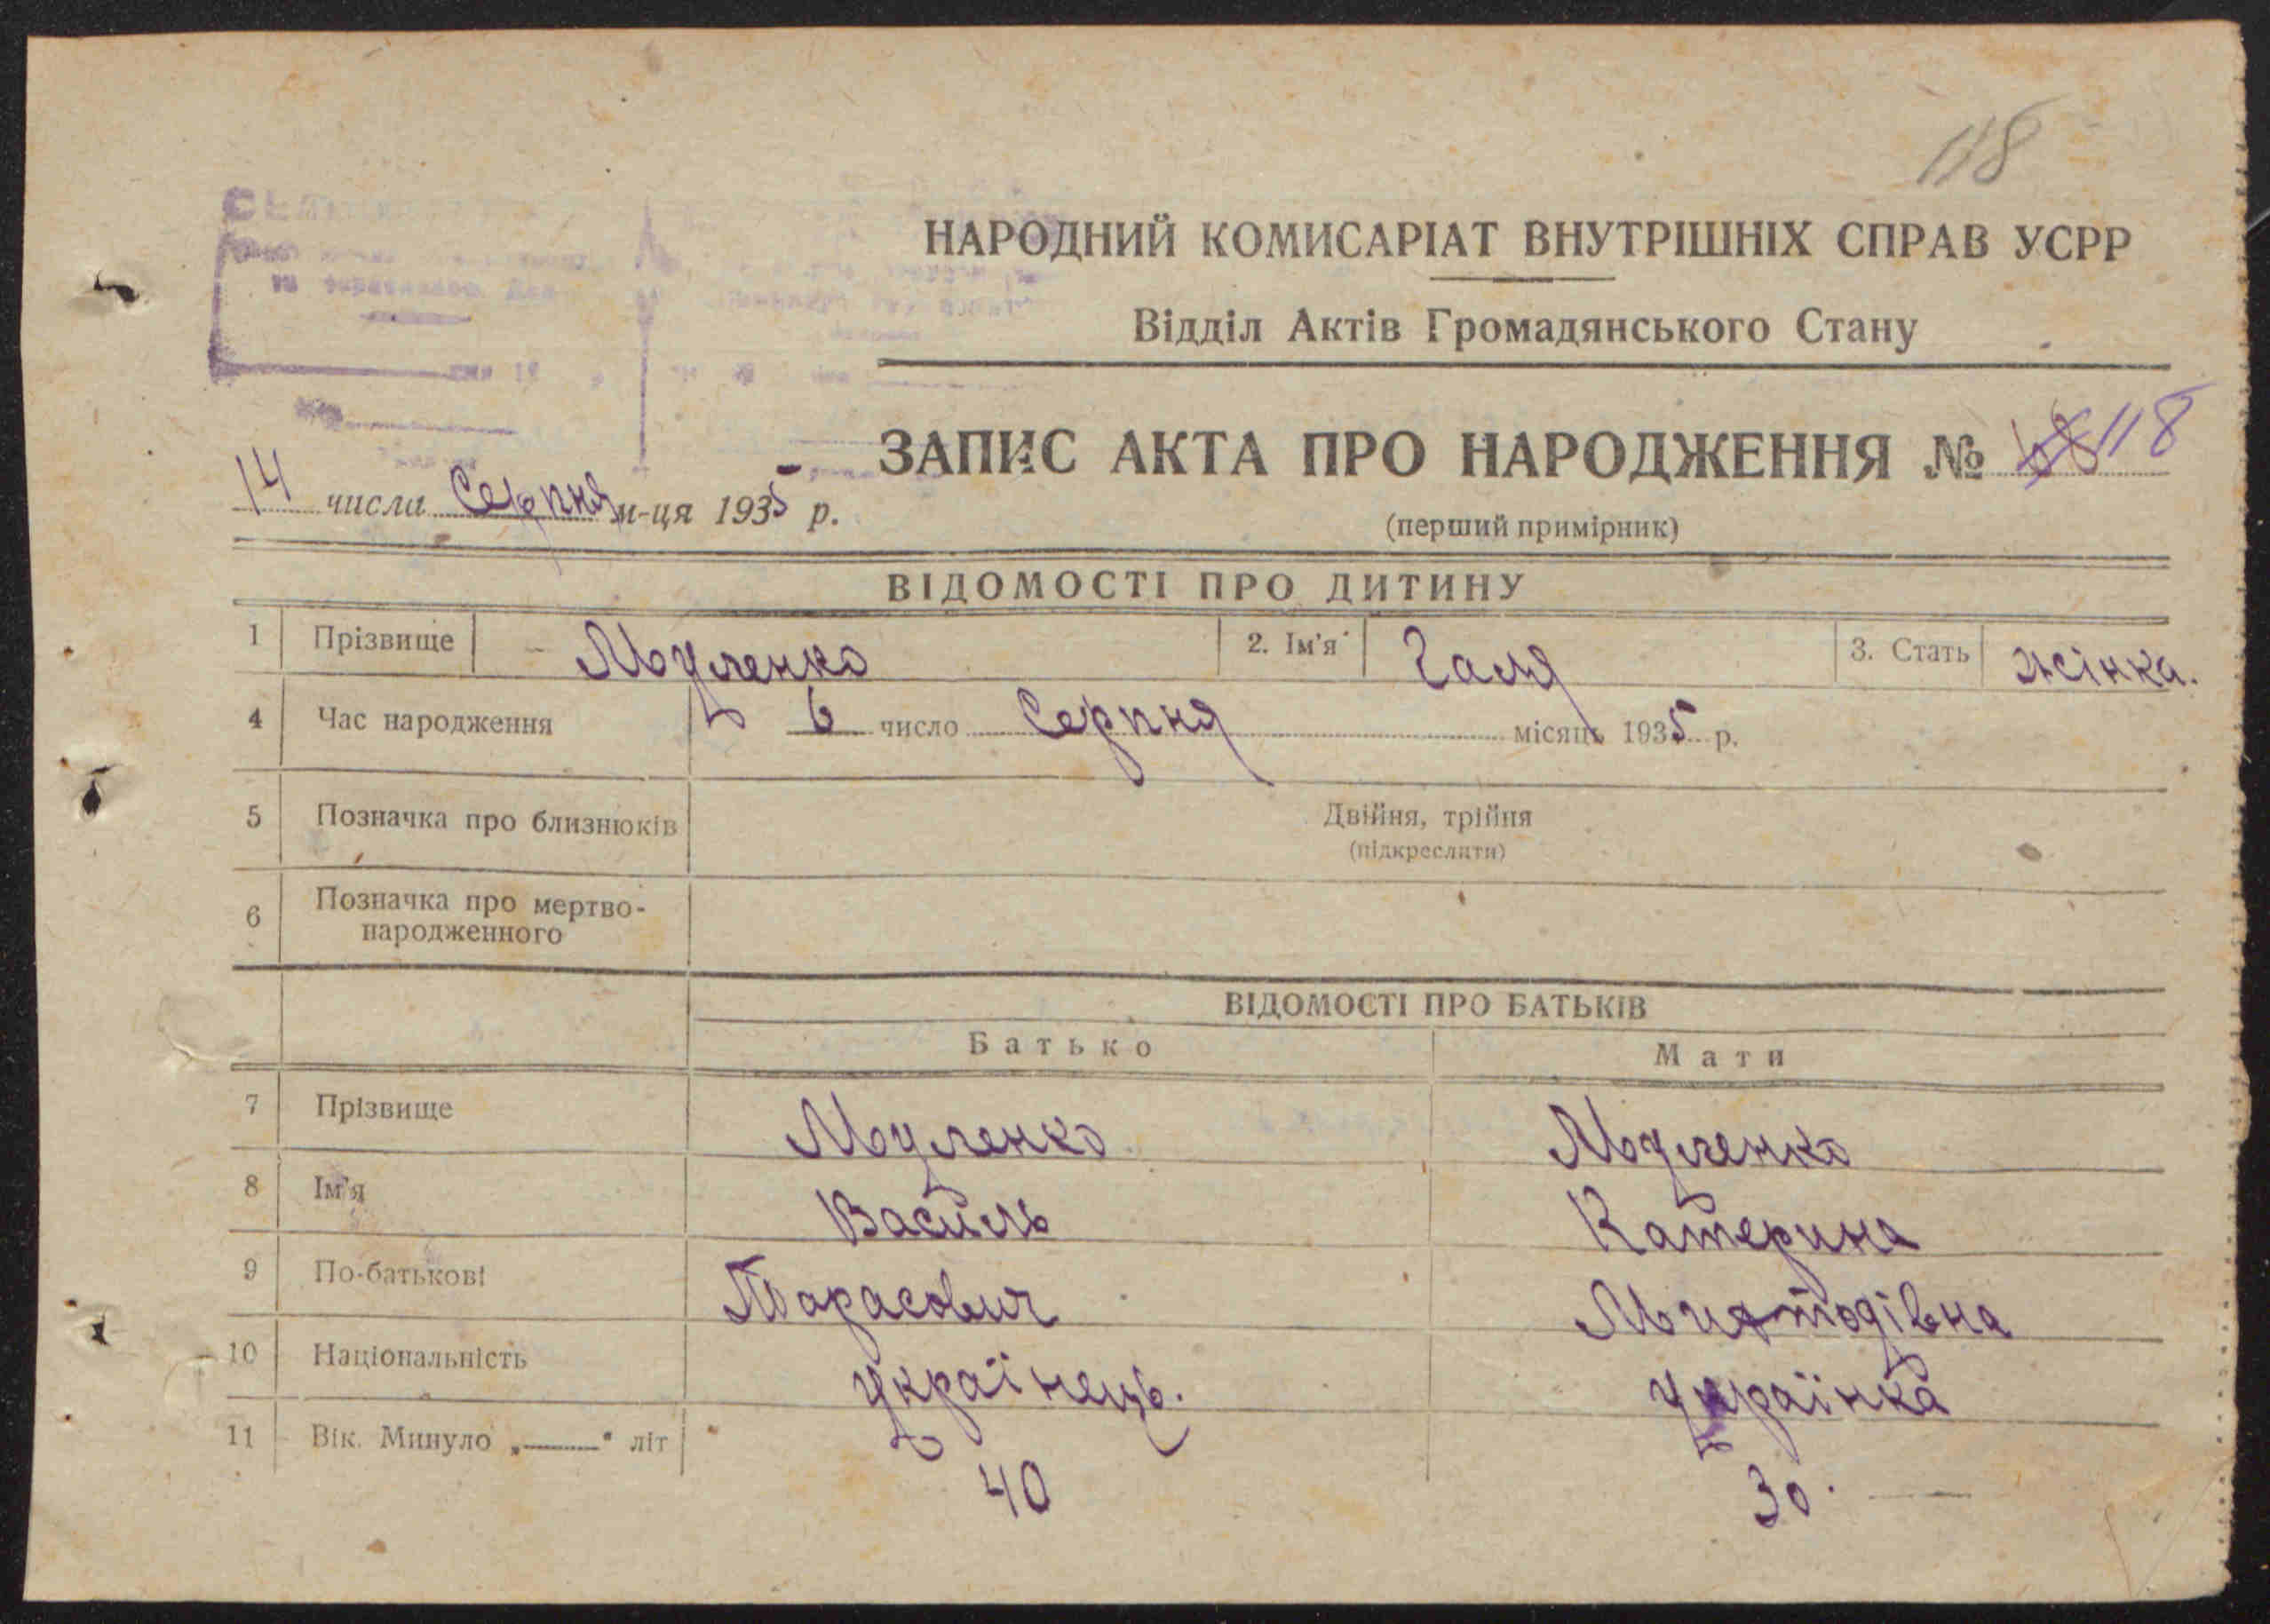 118
НАРОДНИЙ КОМИСАРІАТ ВНУТРІШНІХ СПРАВ УСРР
Відділ Актів Громадянського Стану
ЗАПИС АКТА ПРО НАРОДЖЕННЯ № 118
14 числа Серпня м-ця 1935 р.
(перший примірник)
ВІДОМОСТІ ПРО ДИТИНУ
1 Прізвище Муленко 2. Ім'я Галя 3. Стать жінка.
4 Час народження 6 число Серпня місяць 1935 р.
5 Позначка про близнюків Двійня, трійня
(підкреслити)
6 Позначка про мертво-
народженного
ВІДОМОСТІ ПРО БАТЬКІВ
Батько Мати
7 Прізвище Муленко Муленко
8 Ім'я Василь Катерина
9 По-батькові Тарасович
10 Національність українець. українка
11 Вік. Минуло „——" літ 40 30.